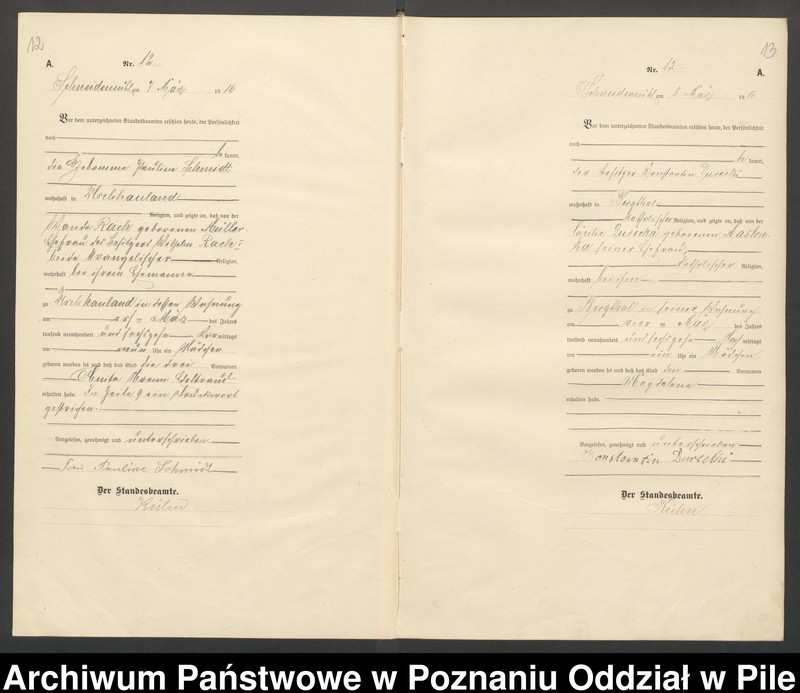 12
A.
Nr. 12
Schneidemühl am 7. März 19 16
Vor dem unterzeichneten Standesbeamten erschien heute, der Persönlichkeit
nach
be kannt,
die Hebamme Pauline Schmidt
wohnhaft in Usch Hauland
Religion, und zeigte an, daß von der
Wanda Rach geborenen Müller
Ehefrau des Besitzers Wilhelm Rach,
beide evangelischer Religion,
wohnhaft bei ihrem Ehemanne
zu Usch Hauland in dessen Wohnung
am März des Jahres
tausend neunhundert und sechszehn Vor mittags
um neun Uhr ein Mädchen
geboren worden sei und daß das Kind die drei Vornamen
erhalten habe. In Zeile 9 ein Druckwort
gestrichen.
Vorgelesen, genehmigt und unterschrieben
Frau Pauline Schmidt
Der Standesbeamte.
13
Nr. 13
A.
Schneidemühl am 8. März 19 16
Vor dem unterzeichneten Standesbeamten erschien heute, der Persönlichkeit
nach
be kannt,
der Besitzer Konstantin
wohnhaft in
katholischer Religion, und zeigte an, daß von der
geborenen
seiner Ehefrau,
katholischer Religion,
wohnhaft bei ihm
zu in seiner Wohnung
am vier März des Jahres
tausend neunhundert und sechszehn Nach mittags
um ein Uhr ein Mädchen
geboren worden sei und daß das Kind den Vornamen
Magdalena
erhalten habe.
Vorgelesen, genehmigt und unterschrieben
Konstantin
Der Standesbeamte.
Archiwum Państwowe w Poznaniu Oddział w Pile